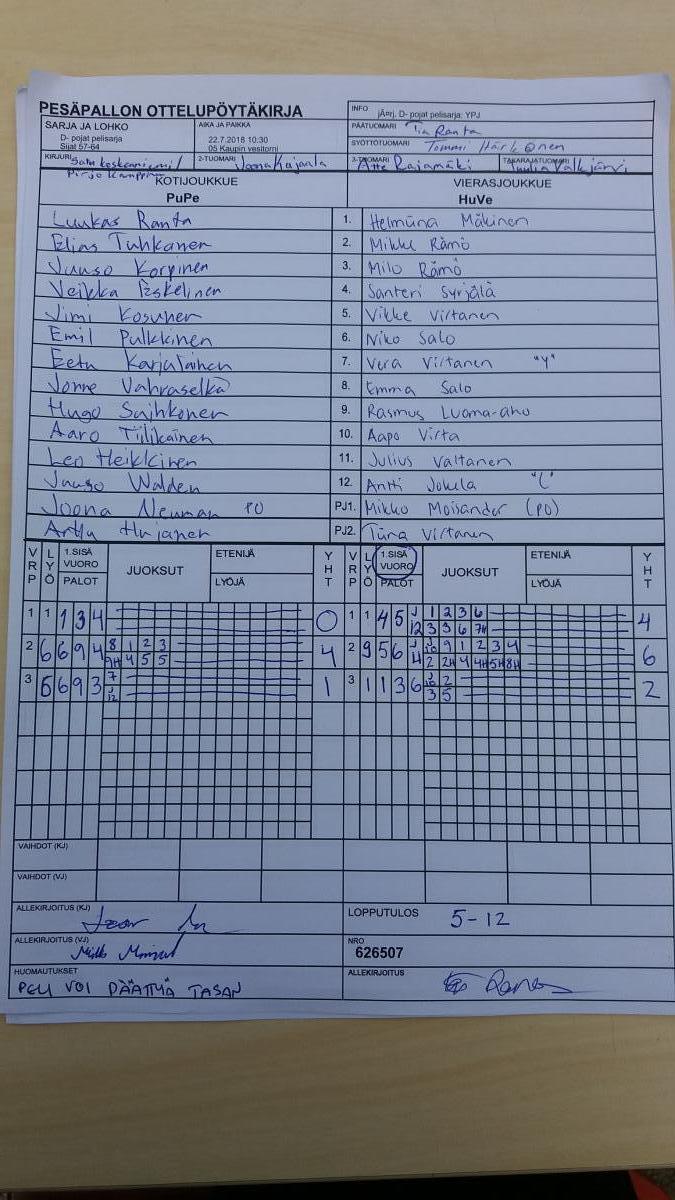 PESÄPALLON OTTELUPÖYTÄKIRJA
INFO jÄnj. D- pojat pelisarja: YPJ
SARJA JA LOHKO
D- pojat pelisarja
Sijat 57-64
AIKA JA PAIKKA
22.7.2018 10:30
05 Kaupin vesitorni
PÄÄTUOMARI Tia Ranta
SYÖTTÖTUOMARI Tommi Härkönen
KIRJURI Satu Koskenniemi
Pirjo
2-TUOMARI Joona Kajaala
3-TUOMARI Atte Rajamäki
TAKARAJATUOMARI Tuulia Valkjärvi
KOTIJOUKKUE
PuPe
VIERASJOUKKUE
HuVe
Luukas Ranta 1. Helmiina Mäkinen
Elias Tuhkanen 2. Mikke Rämö
Juuso Korpinen 3. Milo Rämö
Veikka Eskelinen 4. Santeri Syrjälä
Jimi Kosunen 5. Vikke Virtanen
Emil Pulkkinen 6. Niko Salo
Eetu Karjalainen 7. Vera Virtanen "Y"
Jonne Vahvaselkä 8. Emma Salo
Hugo Saihkonen 9. Rasmus Luoma-aho
Aaro Tiilikainen 10. Aapo Virta
Leo Heikkinen 11. Julius Valtanen
Juuso Walden 12. Antti Jokela "L"
Joona Neuman PO PJ1. Mikko Moisander (PO)
Arttu PJ2. Tiina Virtanen
VRP LYÖ 1.SISÄ VUORO PALOT JUOKSUT ETENIJÄ LYÖJÄ YHT VRP LYÖ 1.SISÄ VUORO PALOT JUOKSUT ETENIJÄ LYÖJÄ YHT
1 1 1 3 4 0 1 1 4 5 J 1 2 3 6 4
12 3 3 6 7H
2 6 6 9 4 8 1 2 3 4 2 9 5 6 J 9 1 2 3 4 6
9H 4 5 5 4 2 2H 4 4H 5H 8H
3 5 6 9 3 7 1 3 1 1 3 6 J 2 2
J12 3 5
VAIHDOT (KJ)
VAIHDOT (VJ)
ALLEKIRJOITUS (KJ)
LOPPUTULOS 5-12
ALLEKIRJOITUS (VJ)
NRO
626507
HUOMAUTUKSET
PELI VOI PÄÄTTYÄ TASAN
ALLEKIRJOITUS